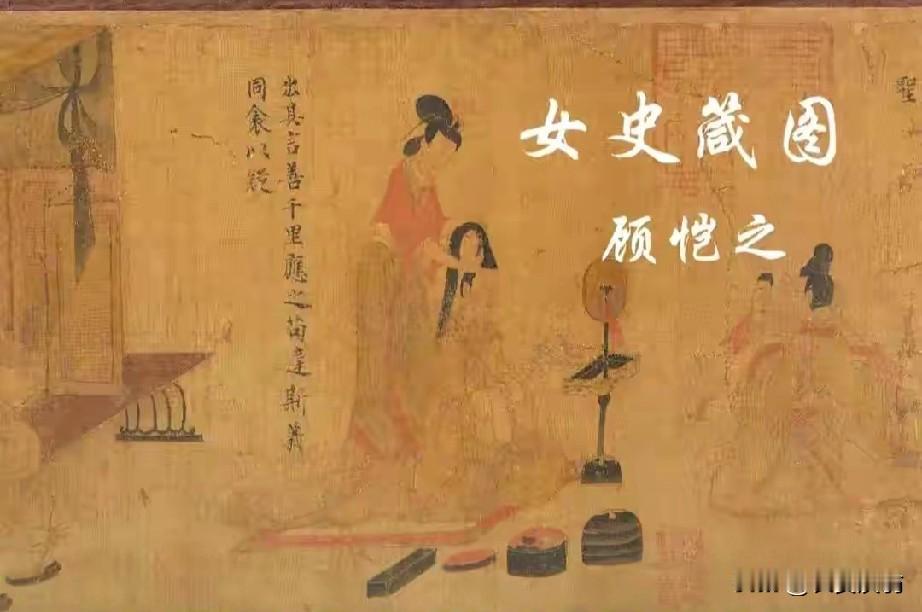 女史箴图
顾恺之
出其言善千里應之苟違斯義
同衾以疑